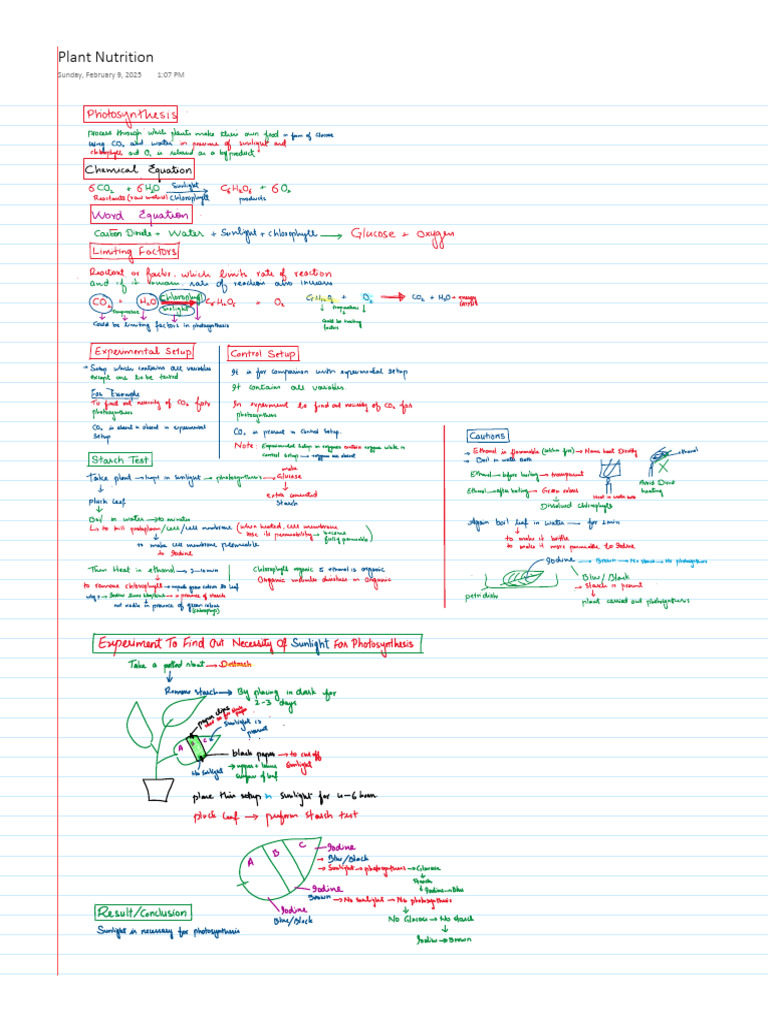 Plant Nutrition
Sunday, February 9, 2025 1:07 PM
Photosynthesis
process through which plants make their own food in form of Glucose
using CO2 and water in presence of sunlight and
chlorophyll and O2 is released as a byproduct
Chemical Equation
6CO2 + 6H2O Sunlight Chlorophyll → C6H12O6 + 6O2
Reactants (raw material) products
Word Equation
Carbon Dioxide + Water + Sunlight + chlorophyll → Glucose + oxygen
Limiting Factors
Reactant or factor, which limits rate of reaction
and if it increases, rate of reaction also increase
CO2 + H2O Chlorophyll Sunlight → C6H12O6 + O2
C6H12O6 + O2 → CO2 + H2O + energy
Could be limiting factors in photosynthesis
Could be limiting
factors
Experimental Setup
Setup which contains all variables
except one to be tested
For Example
To find out necessity of CO2 for
photosynthesis
CO2 is absent in experimental
setup
Control Setup
It is for comparison with experimental setup
It contains all variables.
In experiment to find out necessity of CO2 for
photosynthesis
CO2 is present in control setup.
Note:
control setup → oxygen
Starch Test
Take plant → kept in sunlight → photosynthesis → Glucose
make
extra converted
Starch
pluck leaf
Boil in water →
Ls to kill protoplasm/cell/cell membrane (when heated, cell membrane
lose its permeability → becomes
fully permeable)
to make cell membrane permeable
to Iodine
Then Heat in ethanol → 2-10 min
Chlorophyll organic & ethanol is organic
Organic molecules dissolves in Organic
to remove chlorophyll → green colour of leaf
in presence of starch
not visible in presence of green colour
(chlorophyll)
Cautions
→ Ethanol is flammable (catches fire) → Never heat Directly
→ Boil in water bath
Ethanol → before boiling → transparent
Ethanol → after boiling → Green colour
Dissolved chlorophyll
Heat in water bath
ethanol
Avoid Direct
heating
Again boil leaf in water → for 1 min
→ to make it brittle
→ to make it more permeable to Iodine
Iodine → Brown → No starch → No photosynthesis
Blue/Black
→ Starch is present
plant carried out photosynthesis
petridish
Experiment To Find Out Necessity Of Sunlight For Photosynthesis
Take a potted plant → Destarch
Remove starch → By placing in dark for
2-3 days
paper clips
sunlight is
present
A C
black paper → to cut off
sunlight
→ upper & lower
surface of leaf
No sunlight
place this setup in sunlight for 4-6 hours
pluck leaf → perform starch test
A B C
Iodine
→ Blue/Black
→ Sunlight → photosynthesis → Glucose
Starch
Iodine → Blue
Iodine
Brown → No sunlight → No photosynthesis
No Glucose → No starch
Iodine → Brown
Iodine
Blue/Black
Result/Conclusion
Sunlight is necessary for photosynthesis